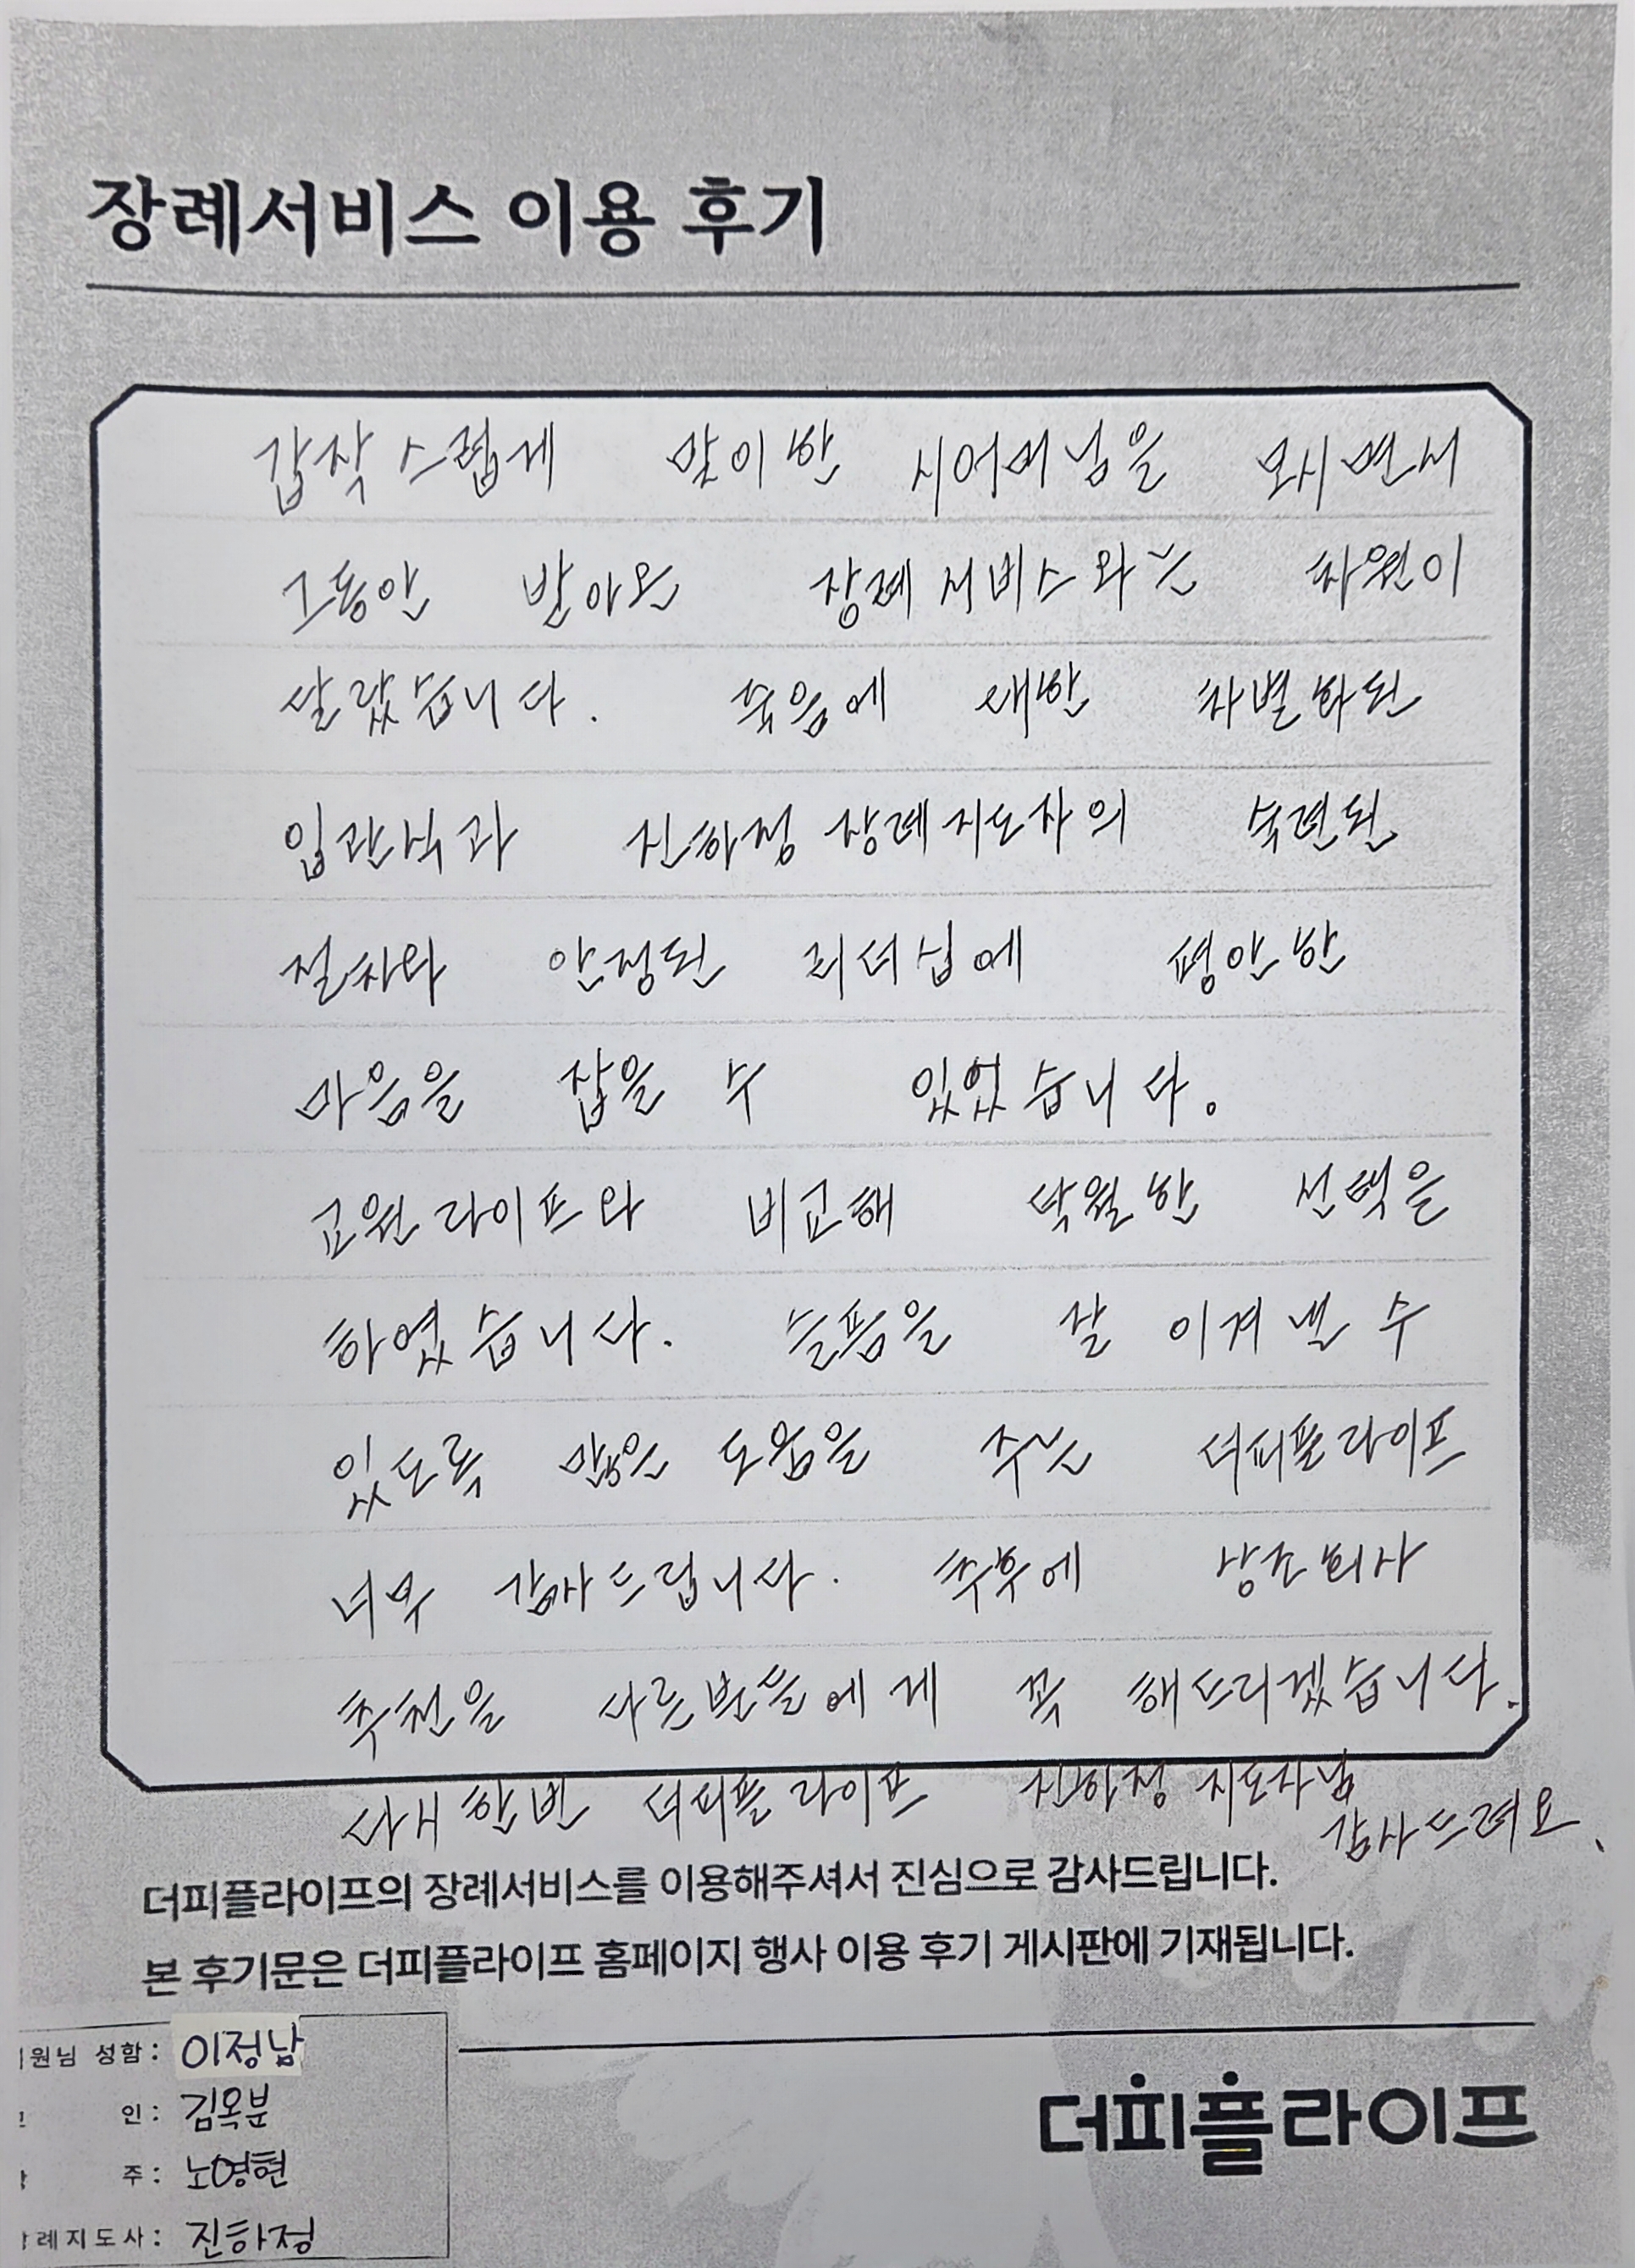 장례서비스 이용 후기
갑작스럽게 맞이한 시어머님을 모시면서
그동안 받아온 장례서비스와는 차원이
달랐습니다. 죽음에 대한 차별화된
입관식과 진하정 장례지도사의 숙련된
절차와 안정된 리더십에 평안한
마음을 잡을 수 있었습니다.
교원라이프와 비교해 탁월한 선택을
하였습니다. 슬픔을 잘 이겨낼 수
있도록 많은 도움을 주는 더피플라이프
너무 감사드립니다. 추후에 상조회사
추천을 다른분들에게 꼭 해드리겠습니다.
다시 한번 더피플라이프 진하정 지도사님
감사드려요.
더피플라이프의 장례서비스를 이용해주셔서 진심으로 감사드립니다.
본 후기문은 더피플라이프 홈페이지 행사 이용 후기 게시판에 기재됩니다.
원님 성함: 이정남
인: 김옥분
주: 노영현
례지도사: 진하정
더피플라이프